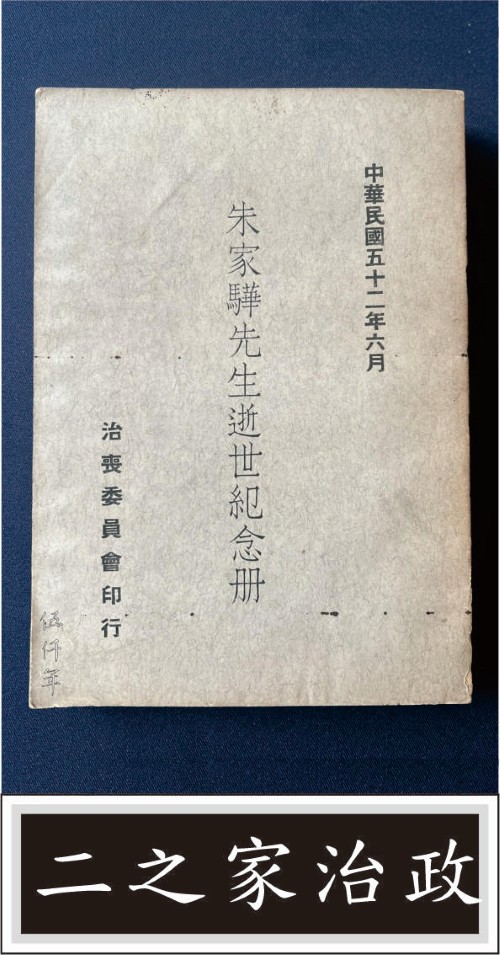 中華民國五十二年六月
朱家驊先生逝世紀念册
治喪委員會印行
伍仟年
政治家之二